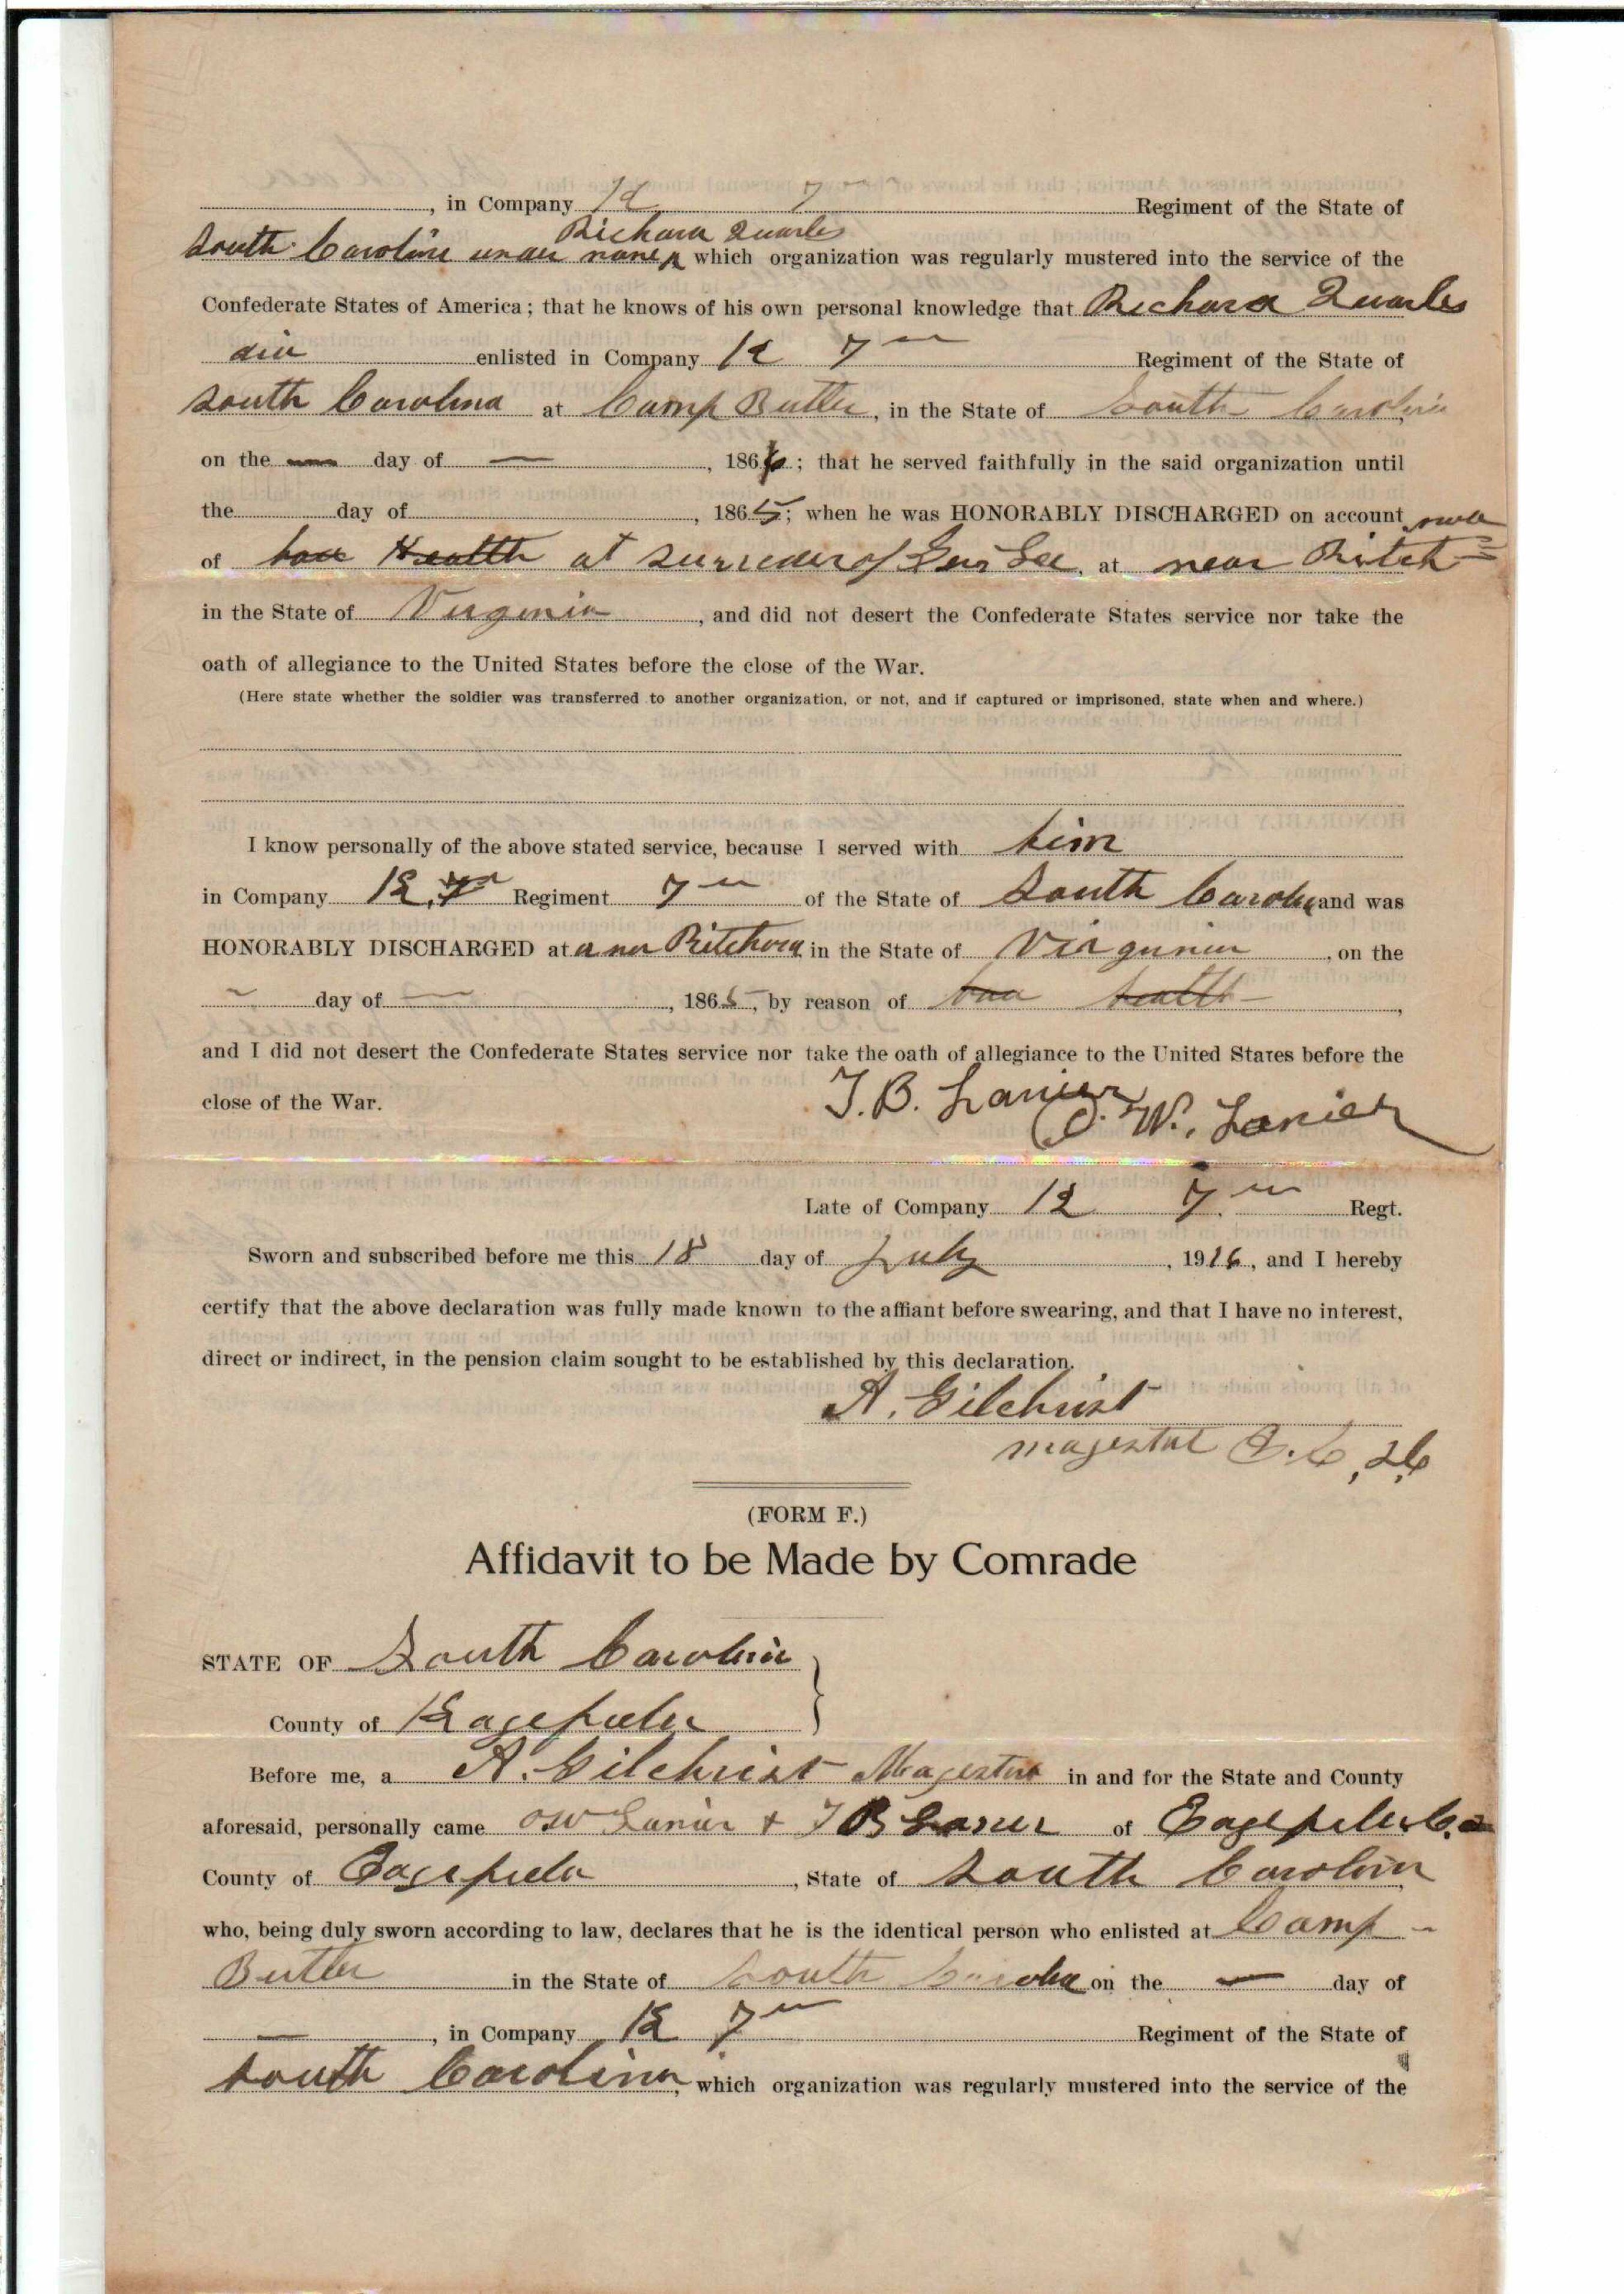 , in Company K 7 Regiment of the State of
Richard Quarles
South Carolina under name ^ which organization was regularly mustered into the service of the
Confederate States of America; that he knows of his own personal knowledge that Richard Quarles
did enlisted in Company K 7th Regiment of the State of
South Carolina at Camp Butler, in the State of South Carolina
on the — day of — , 186 ; that he served faithfully in the said organization until
the day of , 1865; when he was HONORABLY DISCHARGED on account
of bad Health at surrender of Gen Lee, at near Ritch=
in the State of Virginia , and did not desert the Confederate States service nor take the
oath of allegiance to the United States before the close of the War.
(Here state whether the soldier was transferred to another organization, or not, and if captured or imprisoned, state when and where.)
I know personally of the above stated service, because I served with him
in Company K, 7th Regiment 7th of the State of South Carolina and was
HONORABLY DISCHARGED at in the State of Virginia , on the
— day of — , 1865, by reason of bad health ,
and I did not desert the Confederate States service nor take the oath of allegiance to the United States before the
close of the War. T. B. Lanier
O. W. Lanier
Late of Company K 7th Regt.
Sworn and subscribed before me this 18 day of July , 1916, and I hereby
certify that the above declaration was fully made known to the affiant before swearing, and that I have no interest,
direct or indirect, in the pension claim sought to be established by this declaration.
A. Gilchrist
(FORM F.)
Affidavit to be Made by Comrade
STATE OF South Carolina }
County of Edgefield
Before me, a A. Gilchrist Magestrat in and for the State and County
aforesaid, personally came O W Lanier + T B Lanier of Edgefield Co
County of Edgefield , State of South Carolina
who, being duly sworn according to law, declares that he is the identical person who enlisted at Camp -
Butler in the State of South Carolina on the — day of
— , in Company K 7th Regiment of the State of
South Carolina, which organization was regularly mustered into the service of the